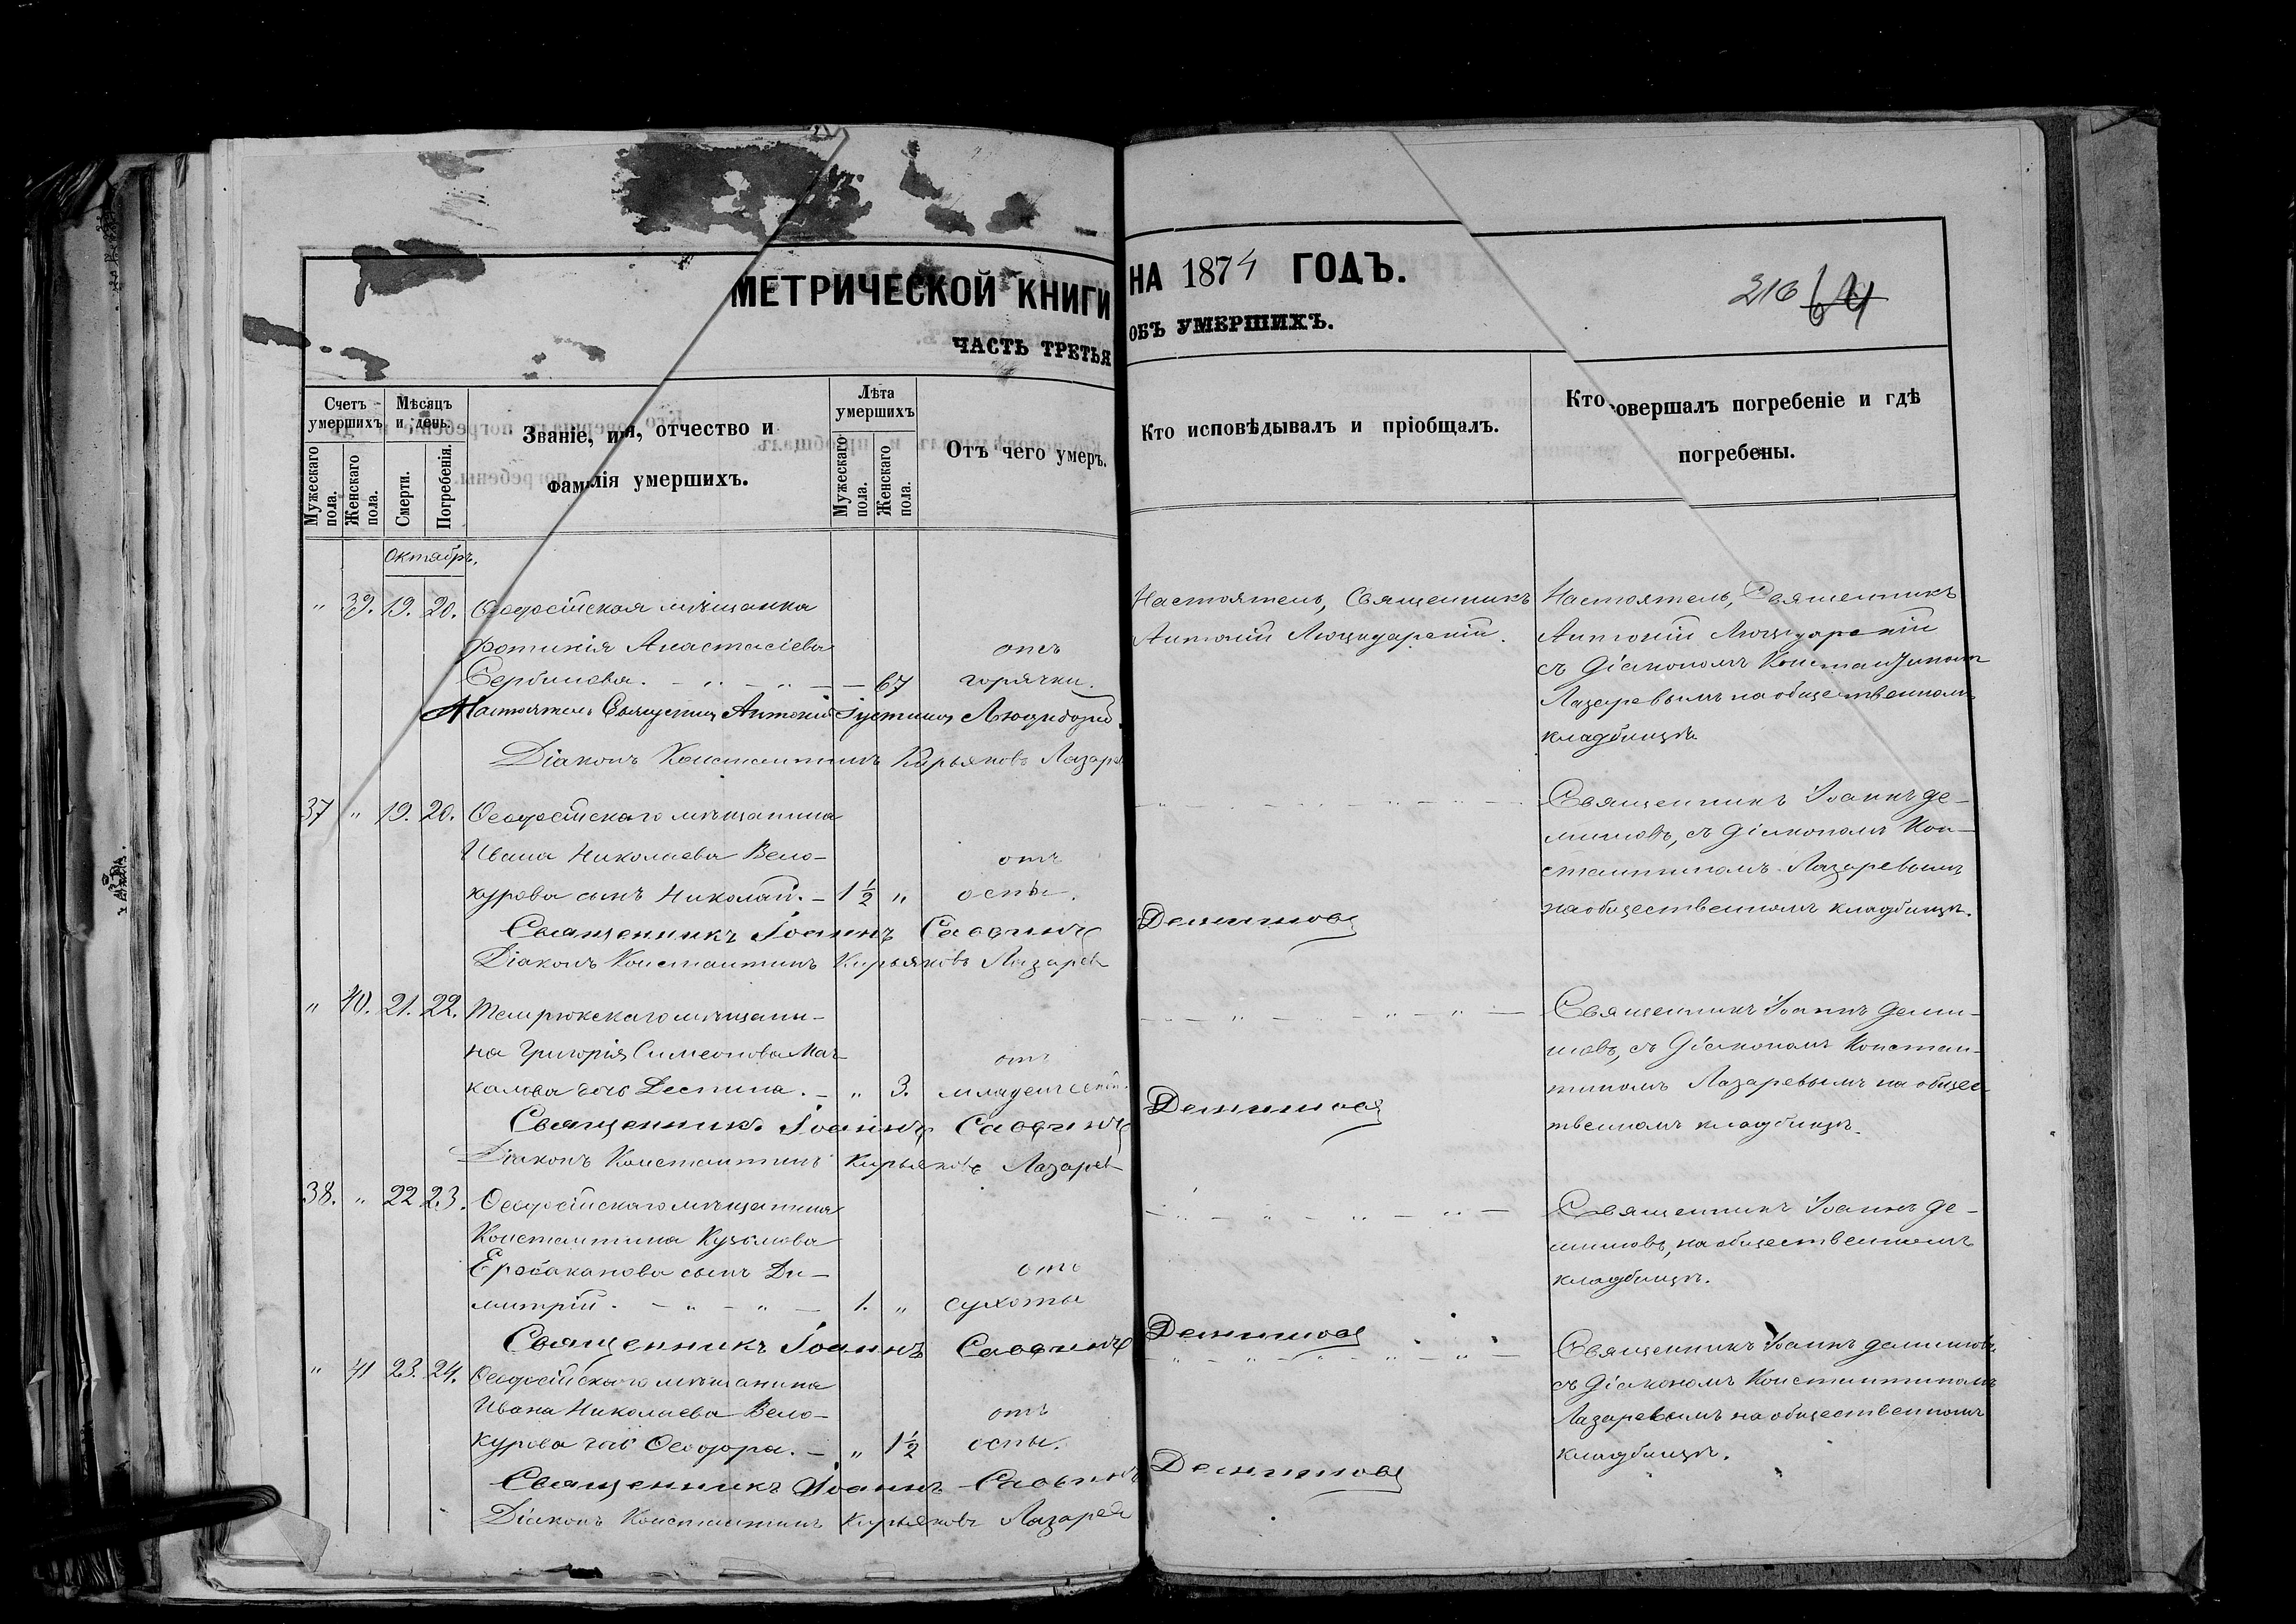 МЕТРИЧЕСКОЙ КНИГИ
ЧАСТЬ ТРЕТЬЯ
НА 1874 ГОДЪ.
ОБЪ УМЕРШИХЪ.
216 64
Счетъ умершихъ
Мѣсяцъ и день.
Мужескаго пола.
Женскаго пола.
Смерти.
Погребенія.
Званіе, имя, отчество и
фамилія умершихъ.
Лѣта умершихъ
Мужескаго пола.
Женскаго пола.
Отъ чего умеръ.
Кто исповѣдывалъ и пріобщалъ.
Кто совершалъ погребеніе и гдѣ
погребены.
Октябрь.
" 39. 19. 20. Ѳеодосійская мѣщанка
Фотинія Анастасіева отъ
Сербинова. - " - " - 67 горячки.
Настоятель, Священникъ
Антоній Люцидарскій.
Настоятель, Священникъ
Антоній Люцидарскій
съ діакономъ Константиномъ
Лазаревымъ на общественномъ
кладбищѣ
Настоятель Священникъ Антоній
Діаконъ Константинъ Кирьяковъ Лазарев
37 " 19. 20. Ѳеодосійскаго мѣщанина
Ивана Николаева Бело- отъ
курова сынъ Николай. - 1 ½ " оспы.
Священникъ Іоаннъ Де-
мишовъ, съ діакономъ Кон-
стантиномъ Лазаревымъ
на общественномъ кладбищѣ.
Священникъ Іоаннъ Саввичъ
Діаконъ Константинъ Кирьяковъ Лазарев
" 40. 21. 22. Темрюкскаго мѣщани-
на Григорія Симеонова отъ
дочь Деспина. - " 3. младенческ.
Священникъ Іоаннъ Деми-
шовъ, съ діакономъ Констан-
тиномъ Лазаревымъ на общес
твенномъ кладбищѣ.
Священникъ Іоаннъ Саввичъ
Діаконъ Константинъ Кирьяковъ Лазарев
38. " 22 23. Ѳеодосійскаго мѣщанина
Константина Кузьмова
сынъ Ди- отъ
митрій. - " - " - 1. " сухоты
Священникъ Іоаннъ Де-
мишовъ, на общественномъ
кладбищѣ.
Священникъ Іоаннъ
" 41 23. 24. Ѳеодосійскаго мѣщанина
Ивана Николаева Бело- отъ
курова дочь Ѳеодора. - " 1½ оспы.
Священникъ Іоаннъ Демишовъ,
съ діакономъ Константиномъ
Лазаревымъ на общественномъ
кладбищѣ.
Священникъ Іоаннъ
Діаконъ Константинъ Кирьяковъ Лазарев